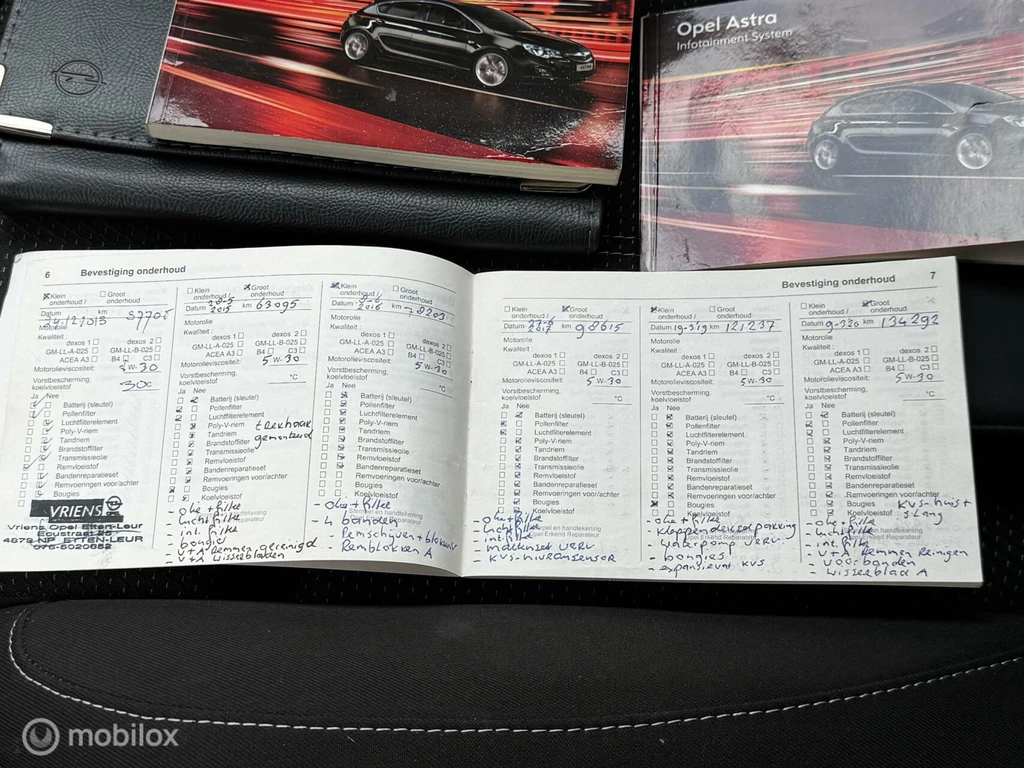 Opel Astra
Infotainment System
6 Bevestiging onderhoud
Klein onderhoud / Groot onderhoud
Datum km
24.12.2013
Motorolie
Kwaliteit:
dexos 1 dexos 2
GM-LL-A-025 GM-LL-B-025
ACEA A3 B4 C3
Motorolieviscositeit: 5W-30
Vorstbescherming, koelvloeistof °C
30
Ja Nee
Batterij (sleutel)
Pollenfilter
Luchtfilterelement
Poly-V-riem
Tandriem
Brandstoffilter
Transmissieolie
Remvloeistof
Bandenreparatieset
Remvoeringen voor/achter
Bougies
Koelvloeistof
VRIENS
Vriens Opel Etten-Leur
4879 NP ETTEN-LEUR
076-5020652
Klein onderhoud / Groot onderhoud
Datum 2015 km 63095
Motorolie
Kwaliteit:
dexos 1 dexos 2
GM-LL-A-025 GM-LL-B-025
ACEA A3 B4 C3
Motorolieviscositeit: 5W-30
Vorstbescherming, koelvloeistof °C
Ja Nee
Batterij (sleutel)
Pollenfilter
Luchtfilterelement
Poly-V-riem trekhaak
Tandriem gemonteerd
Brandstoffilter
Transmissieolie
Remvloeistof
Bandenreparatieset
Remvoeringen voor/achter
Bougies
Koelvloeistof
- olie + filter
- luchtfilter
- int. filter
- bougie
- V+A Remmen gereinigd
- V+A wisserbladen
Klein onderhoud / Groot onderhoud
Datum 2016 km 78203
Motorolie
Kwaliteit:
dexos 1 dexos 2
GM-LL-A-025 GM-LL-B-025
ACEA A3 B4 C3
Motorolieviscositeit: 5W-30
Vorstbescherming, koelvloeistof °C
Ja Nee
Batterij (sleutel)
Pollenfilter
Luchtfilterelement
Poly-V-riem
Tandriem
Brandstoffilter
Transmissieolie
Remvloeistof
Bandenreparatieset
Remvoeringen voor/achter
Bougies
Koelvloeistof
- olie + filter
- 4 banden
- Remschijven + blokken V
- Remblokken A
Bevestiging onderhoud 7
Klein onderhoud / Groot onderhoud
Datum km 98615
Motorolie
Kwaliteit:
dexos 1 dexos 2
GM-LL-A-025 GM-LL-B-025
ACEA A3 B4 C3
Motorolieviscositeit: 5W-30
Vorstbescherming, koelvloeistof °C
Ja Nee
Batterij (sleutel)
Pollenfilter
Luchtfilterelement
Poly-V-riem
Tandriem
Brandstoffilter
Transmissieolie
Remvloeistof
Bandenreparatieset
Remvoeringen voor/achter
Bougies
Koelvloeistof
Stempel en handtekening
Opel Erkend Reparateur
- olie + filter
- luchtfilter
- int. filter
- mattenset verv
- KVS-niveausensor
Klein onderhoud / Groot onderhoud
Datum 19-3/19 km 121237
Motorolie
Kwaliteit:
dexos 1 dexos 2
GM-LL-A-025 GM-LL-B-025
ACEA A3 B4 C3
Motorolieviscositeit: 5W-30
Vorstbescherming, koelvloeistof °C
Ja Nee
Batterij (sleutel)
Pollenfilter
Luchtfilterelement
Poly-V-riem
Tandriem
Brandstoffilter
Transmissieolie
Remvloeistof
Bandenreparatieset
Remvoeringen voor/achter
Bougies
Koelvloeistof
- olie + filter
- kleppendekselpakking
- waterpomp verv.
- bougies
- expansievat KVS
Klein onderhoud / Groot onderhoud
Datum 9-320 km 134292
Motorolie
Kwaliteit:
dexos 1 dexos 2
GM-LL-A-025 GM-LL-B-025
ACEA A3 B4 C3
Motorolieviscositeit: 5W-30
Vorstbescherming, koelvloeistof °C
Ja Nee
Batterij (sleutel)
Pollenfilter
Luchtfilterelement
Poly-V-riem
Tandriem
Brandstoffilter
Transmissieolie
Remvloeistof
Bandenreparatieset
Remvoeringen voor/achter
Bougies KVS-huis +
Koelvloeistof slang
- olie + filter
- luchtfilter
- int. filter
- V+A Remmen Reinigen
- voorbanden
- wisserblad A
mobilox